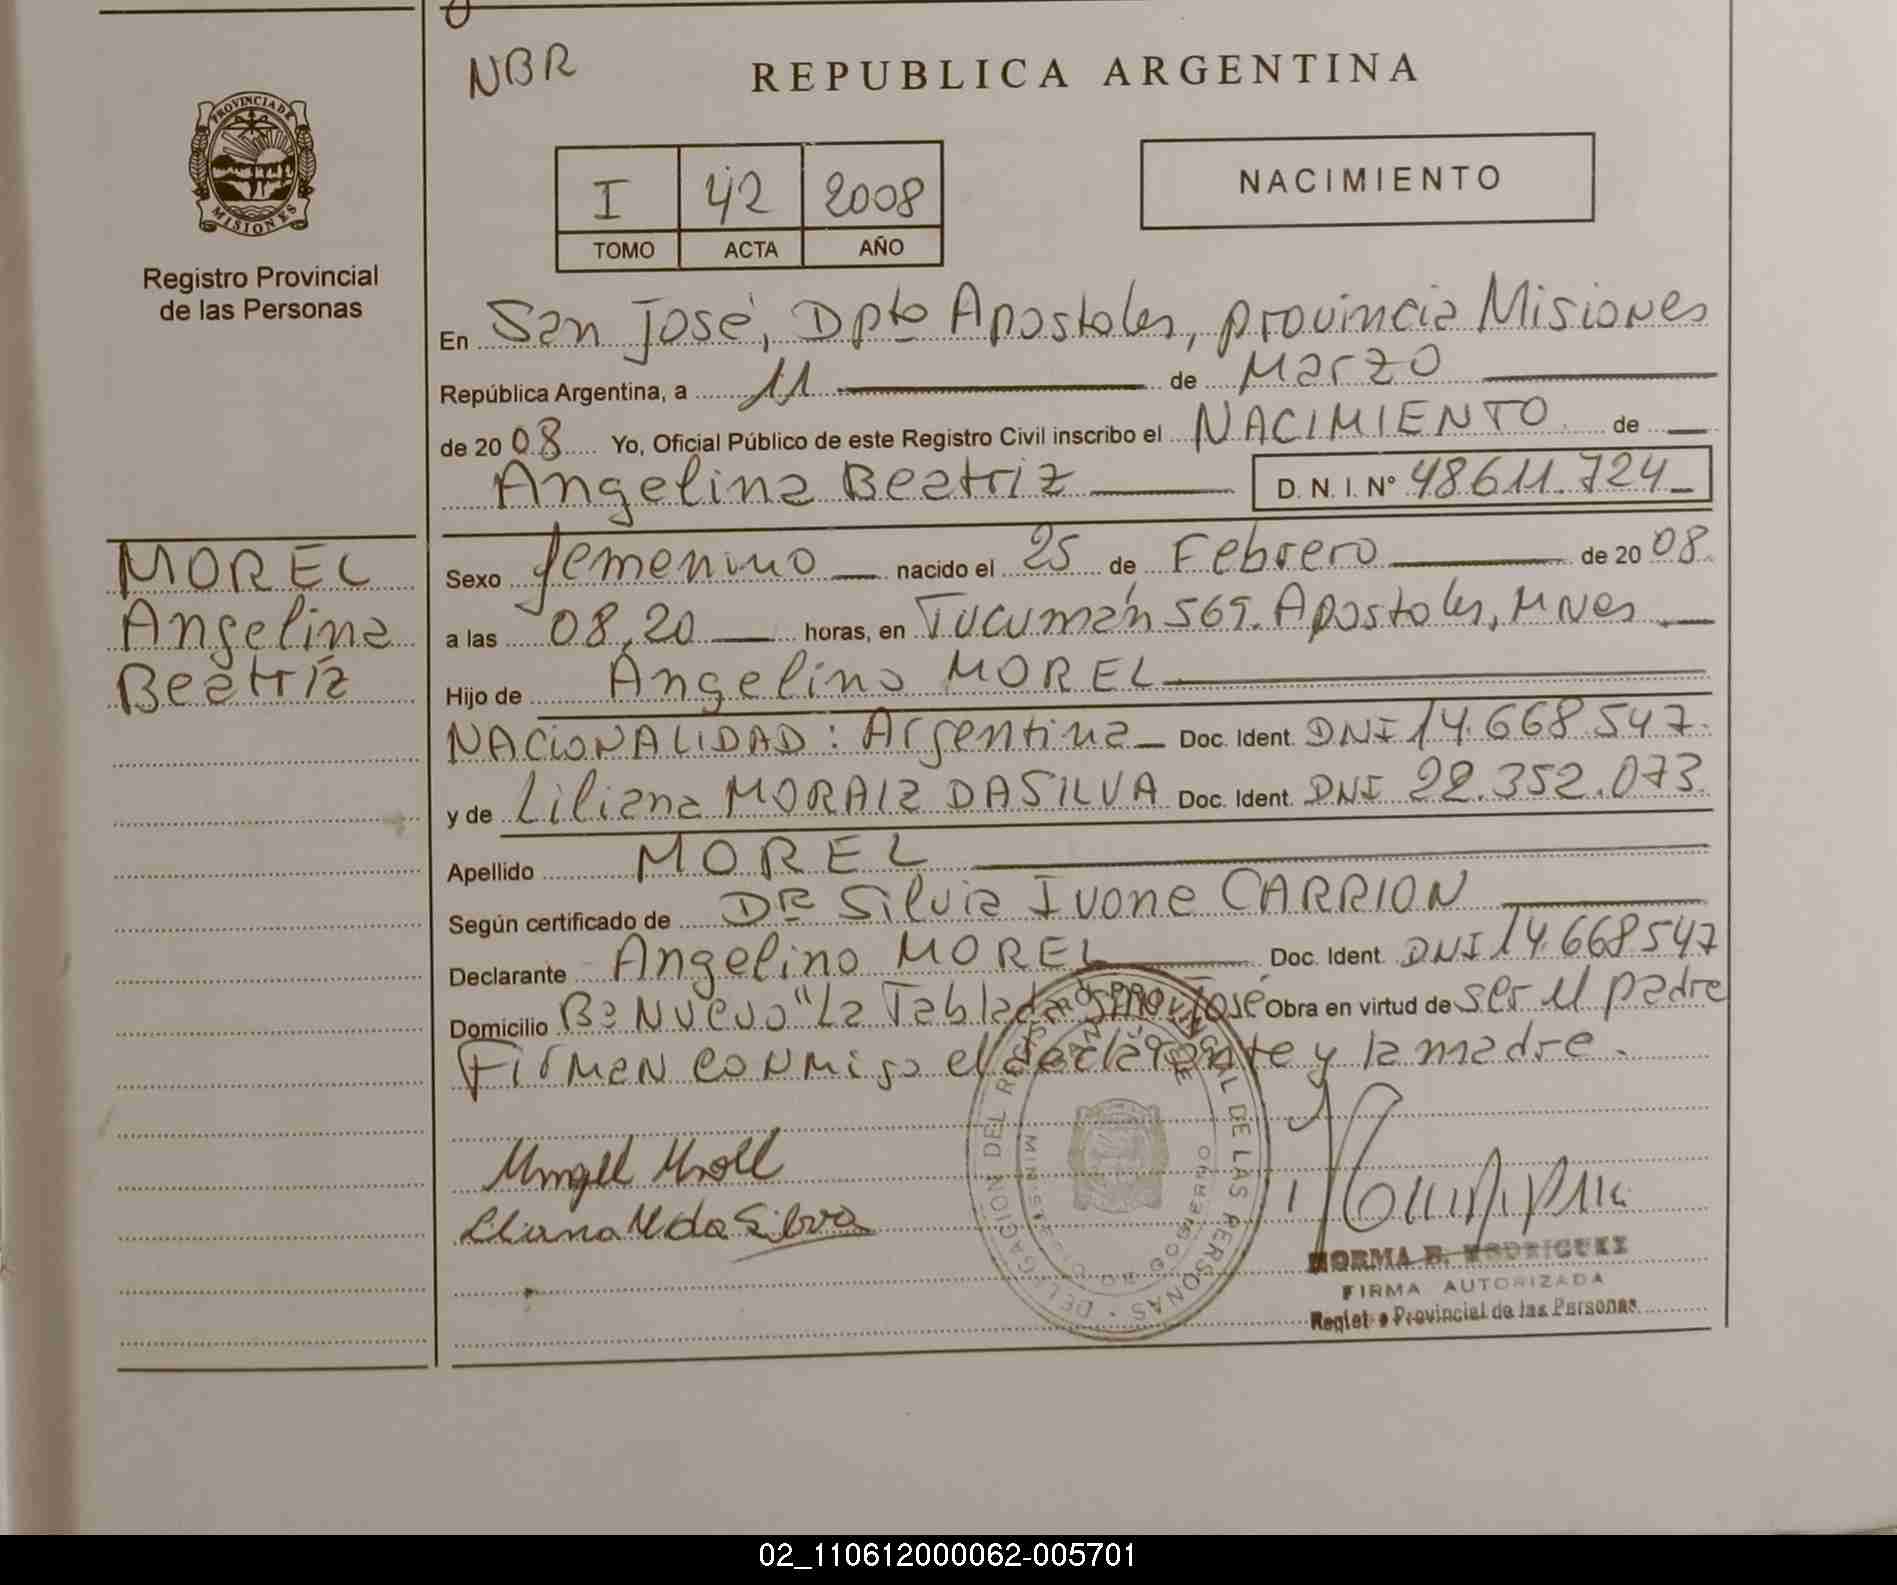 NBR
REPUBLICA ARGENTINA
PROVINCIA DE
MISIONES
Registro Provincial
de las Personas
I 42 2008
TOMO ACTA AÑO
NACIMIENTO
En San José, Dpto Apostoles, provincia Misiones
República Argentina, a 11 de Marzo
de 2008 Yo, Oficial Público de este Registro Civil inscribo el NACIMIENTO de
Angelina Beatriz D.N.I.Nº 48611.724
MOREL
Angelina
Beatríz
Sexo femenino nacido el 25 de Febrero de 2008
a las 08,20 horas, en Tucumán 565. Apostoles, MNes
Hijo de Angelino MOREL
NACIONALIDAD: Argentina Doc. Ident. DNI 14.668.547.
y de Liliana MORAIZ DASILVA Doc. Ident. DNI 22.352.073
Apellido MOREL
Según certificado de DRa Silvia Ivone CARRION
Declarante Angelino MOREL Doc. Ident. DNI 14.668547
Domicilio Bº Nuevo "La Tablada San José Obra en virtud de ser el padre
Firman conmigo el declarante y la madre.
DELEGACION DEL REGISTRO PROVINCIAL DE LAS PERSONAS
MINISTERIO DE GOBIERNO
NORMA B. RODRIGUEZ
FIRMA AUTORIZADA
Registro Provincial de las Personas
02_110612000062-005701